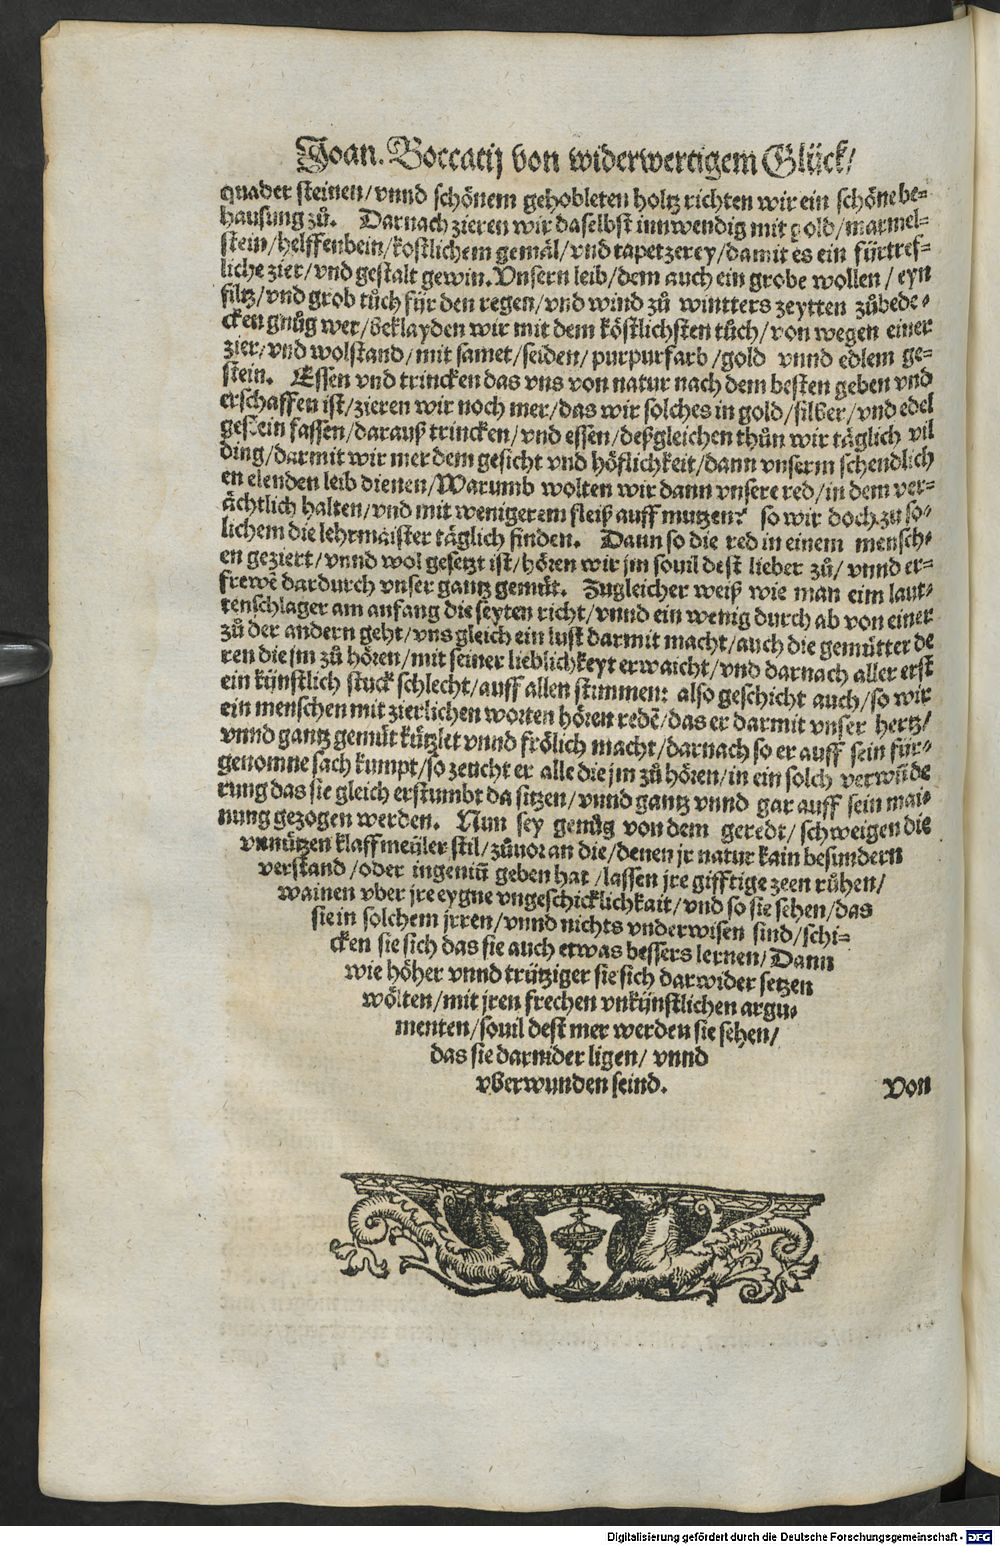 Joan. Boccatij von widerwertigem Glück/
quader steinen/ vnnd schönem gehobleten holtz richten wir ein schöne be-
hausung zů. Darnach zieren wir daselbst innwendig mit gold/ marmel-
stein/ helffenbein/ kostlichem gemäl/ vnd tapetzerey/ damit es ein fürtref-
liche zier/ vnd gestalt gewin. Vnsern leib/ dem auch ein grobe wollen/ eyn
filtz/ vnd grob tůch für den regen/ vnd wind zů wintters zeytten zůbede-
cken gnůg wer/ beklayden wir mit dem köstlichsten tůch/ von wegen einer
zier/ vnd wolstand/ mit samet/ seiden/ purpurfarb/ gold vnnd edlem ge-
stein. Essen vnd trincken das vns von natur nach dem besten geben vnd
erschaffen ist/ zieren wir noch mer/ das wir solches in gold/ silber/ vnd edel
gestein fassen/ darauß trincken/ vnd essen/ deßgleichen thůn wir täglich vil
ding/ darmit wir mer dem gesicht vnd höflichkeit/ dann vnserm schendlich
en elenden leib dienen/ Warumb wolten wir dann vnsere red/ in dem ver-
ächtlich halten/ vnd mit wenigerem fleiß auff mutzen? so wir doch zu so-
lichem die lehrmaister täglich finden. Dann so die red in einem mensch-
en geziert/ vnnd wol gesetzt ist/ hören wir jm souil dest lieber zů/ vnnd er-
frewē dardurch vnser gantz gemůt. Zugleicher weiß wie man eim laut-
tenschlager am anfang die seyten richt/ vnnd ein wenig durch ab von einer
zů der andern geht/ vns gleich ein lust darmit macht/ auch die gemütter de
ren die jm zů hören/ mit seiner lieblichkeyt erwaicht/ vnd darnach aller erst
ein künstlich stuck schlecht/ auff allen stimmen: also geschicht auch/ so wir
ein menschen mit zierlichen worten hören redē/ das er darmit vnser hertz/
vnnd gantz gemůt kützlet vnnd frölich macht/ darnach so er auff sein für-
genomne sach kumpt/ so zeucht er alle die jm zů hören/ in ein solch verwūde
rung das sie gleich erstumbt da sitzen/ vnnd gantz vnnd gar auff sein mai-
nung gezogen werden. Nun sey genůg von dem geredt/ schweigen die
vnnützen klaffmeüler stil/ zůuor an die/ denen jr natur kain besundern
verstand/ oder ingeniū geben hat/ lassen jre gifftige zeen růhen/
wainen vber jre eygne vngeschicklichkait/ vnd so sie sehen/ das
sie in solchem jrren/ vnnd nichts vnderwisen sind/ schi-
cken sie sich das sie auch etwas bessers lernen/ Dann
wie höher vnnd trütziger sie sich darwider setzen
wölten/ mit jren frechen vnkünstlichen argu-
menten/ souil dest mer werden sie sehen/
das sie darnider ligen/ vnnd
vberwunden seind.
Von
Digitalisierung gefördert durch die Deutsche Forschungsgemeinschaft - DFG